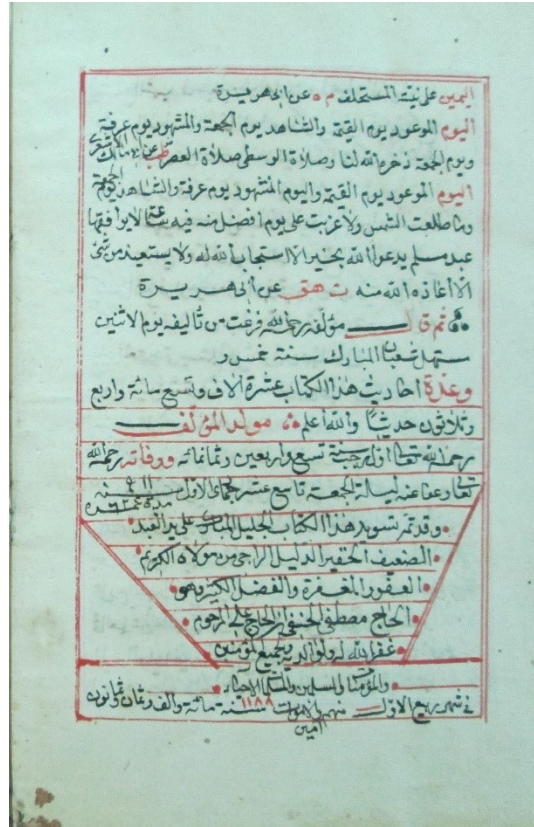 اليمين على نية المستحلف م ه عن ابى هريرة
اليوم الموعود يوم القيمة والشاهد يوم الجمعة والمشهود يوم عرفة
ويوم الجمعة ذخره الله لنا وصلاة الوسطى صلاة العصر طب عن ابى مالك الاشعرى
اليوم الموعود يوم القيمة واليوم المشهود يوم عرفة والشاهد يوم الجمعة
وما طلعت الشمس ولا غربت على يوم افضل منه فيه ساعة لا يوافقها
عبد مسلم يدعوا الله بخير الا استجاب الله له ولا يستعيذ من شئ
الا اعاذه الله منه ت هق عن ابى هريرة
ثم قال مؤلفه رحمه الله فرغت من تاليفه يوم الاثنين
مستهل شعبان المبارك سنة خمس و
وعدة احاديث هذا الكتاب عشرة الاف وتسع مائة واربع
وثلاثون حديثا والله اعلم مولد المؤلف
رحمه الله تعالى اول رجب سنة تسع واربعين وثمانمائه ووفاته رحمه الله
تعالى وعفا عنه ليلة الجمعة تاسع عشر جمادى الاول سنه ٩١١
مدة عمره ٦٢
وقد تم تسويد هذا الكتاب الجليل المبارك على يد العبد
الضعيف الحقير الذليل الراجى من مولاه الكريم
الغفور المغفرة والفضل الكثير وهو
الحاج مصطفى الحنفى ابن الحاج على المرحوم
غفر الله له ولوالديه ولجميع المؤمنين
والمؤمنات والمسلمين والمسلمات الاحياء
فى شهر ربيع الاول منهم والاموات ١١٨٨ سنة مائة والف وثمان وثمانون
امين